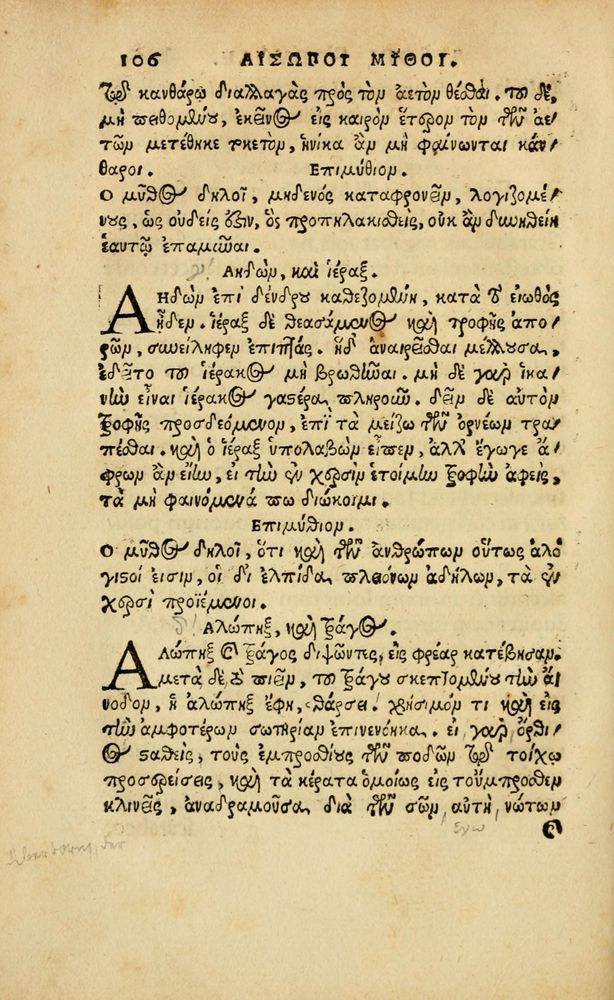 106 ΑΙΣΩΠΟΥ ΜΥΘΟΙ.
τῷ κανθάρῳ διαλλαγὰς πρὸς τὸν ἀετὸν θέσθαι. τοῦ δὲ,
μὴ πειθομένου, ἐκεῖνος εἰς καιρὸν ἕτερον τὸν τῶν ἀε-
τῶν μετέθηκε τοκετὸν, ἡνίκα ἂν μὴ φαίνωνται κάν-
θαροι. Επιμύθιον.
Ο μῦθος δηλοῖ, μηδενὸς καταφρονεῖν, λογιζομέ-
νους, ὡς οὐδείς ἐστιν, ὃς προπηλακισθεὶς, οὐκ ἂν δυνηθείη
ἑαυτῷ ἐπαμῦναι.
γ. Αηδὼν, καὶ ἱέραξ.
ΑΗδὼν ἐπὶ δένδρου καθεζομένη, κατὰ τὸ εἰωθὸς
ᾖδεν. ἱέραξ δὲ θεασάμενος καὶ τροφῆς ἀπο-
ρῶν, συνείληφεν ἐπιπτάς. ἡ δὲ ἀναιρεῖσθαι μέλλουσα,
ἐδεῖτο τοῦ ἱέρακος μὴ βρωθῆναι. μὴ δὲ γὰρ ἱκα-
νὴν εἶναι ἱέρακος γαστέρα πληροῦν. δεῖν δὲ αὐτὸν
τροφῆς προσδεόμενον, ἐπὶ τὰ μείζω τῶν ὀρνέων τρα-
πέσθαι. καὶ ὁ ἱέραξ ὑπολαβὼν εἶπεν, ἀλλ' ἔγωγε ἄ-
φρων ἂν εἴην, εἰ τὴν ἐν χερσὶν ἑτοίμην τροφὴν ἀφεὶς,
τὰ μὴ φαινόμενά πω διώκοιμι.
Επιμύθιον.
Ο μῦθος δηλοῖ, ὅτι καὶ τῶν ἀνθρώπων οὕτως ἀλό-
γιστοί εἰσιν, οἱ δι' ἐλπίδα πλειόνων ἀδήλων, τὰ ἐν
χερσὶ προϊέμενοι.
δ. Αλώπηξ, καὶ τράγος.
ΑΛώπηξ καὶ τράγος διψῶντες, εἰς φρέαρ κατέβησαν.
μετὰ δὲ τὸ πιεῖν, τοῦ τράγου σκεπτομένου τὴν ἄ-
νοδον, ἡ ἀλώπηξ ἔφη, θάρσει. χρήσιμόν τι καὶ εἰς
τὴν ἀμφοτέρων σωτηρίαν ἐπινενόηκα. εἰ γὰρ ὄρθι-
ος σταθεὶς, τοὺς ἐμπροσθίους τῶν ποδῶν τῷ τοίχῳ
προσερείσεις, καὶ τὰ κέρατα ὁμοίως εἰς τοὔμπροσθεν
κλινεῖς, ἀναδραμοῦσα διὰ τῶν σῶν αὐτὴ νώτων
ἐγω
καὶ